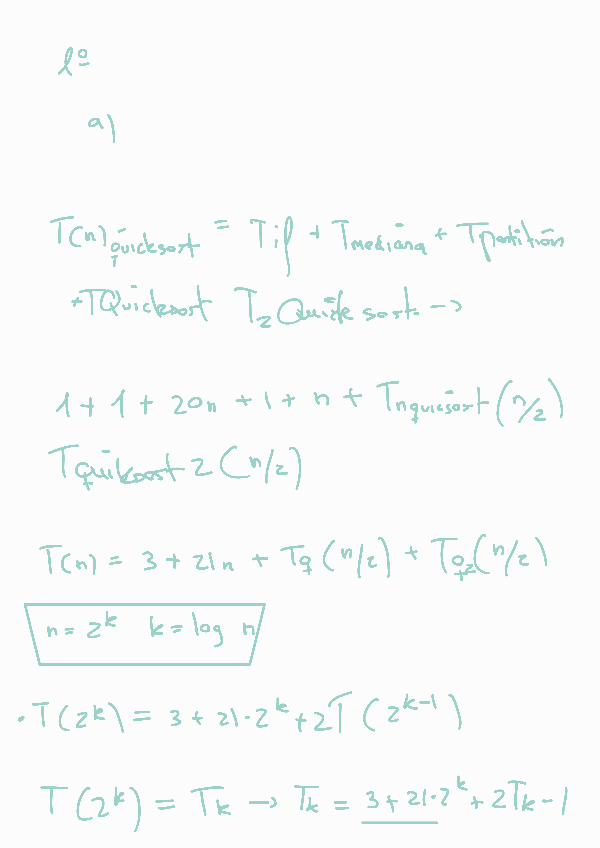 1º
a)
T(n)quicksort = Tif + Tmediana + Tpartition
+TQuicksort T2 Quicksort →
1 + 1 + 20n + 1 + n + Tnquicksort (n/2)
Tquiksort 2 (n/2)
T(n) = 3 + 21n + Tq (n/2) + Tq2 (n/2)
n = 2^k k = log n
· T(2^k) = 3 + 21·2^k + 2T (2^k-1)
T(2^k) = Tk → Tk = 3 + 21·2^k + 2Tk-1